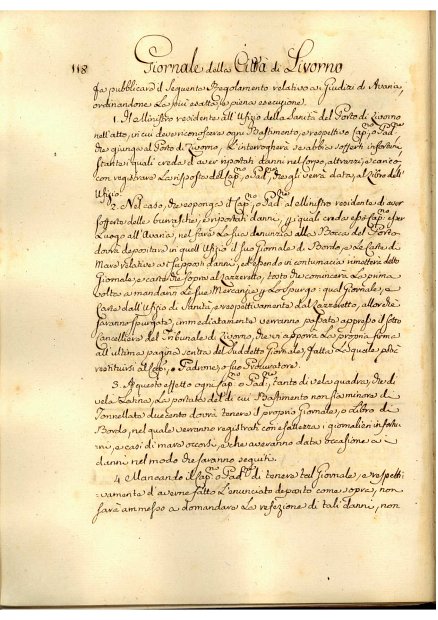 118 Giornale della Città di Livorno
fa pubblicare il seguente Regolamento relativo a' Giudizi di Avaria,
ordinandone la più esatta, e piena esecuzione.
1. Il Ministro residente all'Ufizio della Sanità del Porto di Livorno
nell'atto, in cui deve riconoscere ogni Bastimento, e respettivo Cap.º o Pad.ne
che giunga al Porto di Livorno, l'interrogherà se abbia sofferti infortuni
stante i quali creda d'aver riportati danni nel Corpo, attrezzi, e carico
con registrare la risposta del Cap.º o Pad.ne, che gli verrà data, al Libro dell'
Ufizio.
2. Nel caso, che esponga il Cap.º, o Pad.ne al Ministro residente di aver
sofferte delle burrasche, e riportati danni, p i quali creda esso Cap.º esser
Luogo all'Avaria, nel farsi la sua denunzia alla Bocca del Porto
dovrà depositare in quell'Ufizio il suo Giornale di Bordo, e le Carte di
Mare relative a i supposti danni, ed essendo in contumacia rimettere detto
Giornale, e carte che sopra al Lazzeretto, tosto che comincerà la prima
volta a mandarvi le sue Mercanzie p lo spurgo: qual Giornale, e
Carte dall'Ufizio di Sanità, e respettivamente dal Lazzeretto, allorche
saranno spurgate, immediatamente verranno passate appresso il Sotto
cancelliere del Tribunale di Livorno, che vi apporrà la propria firma
all'ultima pagina scritta del suddetto Giornale, fatta la quale potrà
restituirsi al Cap.º, o Padrone, o suo Procuratore.
3. A questo effetto ogni Cap.º o Pad.ne, tanto di vela quadra, che di
vela Latina, la portata del di cui Bastimento non sia minore di
Tonnellate duecento dovrà tenere il proprio Giornale, o Libro di
Bordo, nel quale verranno registrati con esattezza i giornalieri infortu
ni, e casi di mare occorsi, e che averanno data occasione a i
danni nel modo che saranno seguiti.
4. Mancando il Cap.º o Pad.ne di tenere tal Giornale, e respetti
vamente d'averne fatto l'enunciato deposito come sopra, non
sarà ammesso a domandare la refezione di tali danni, non